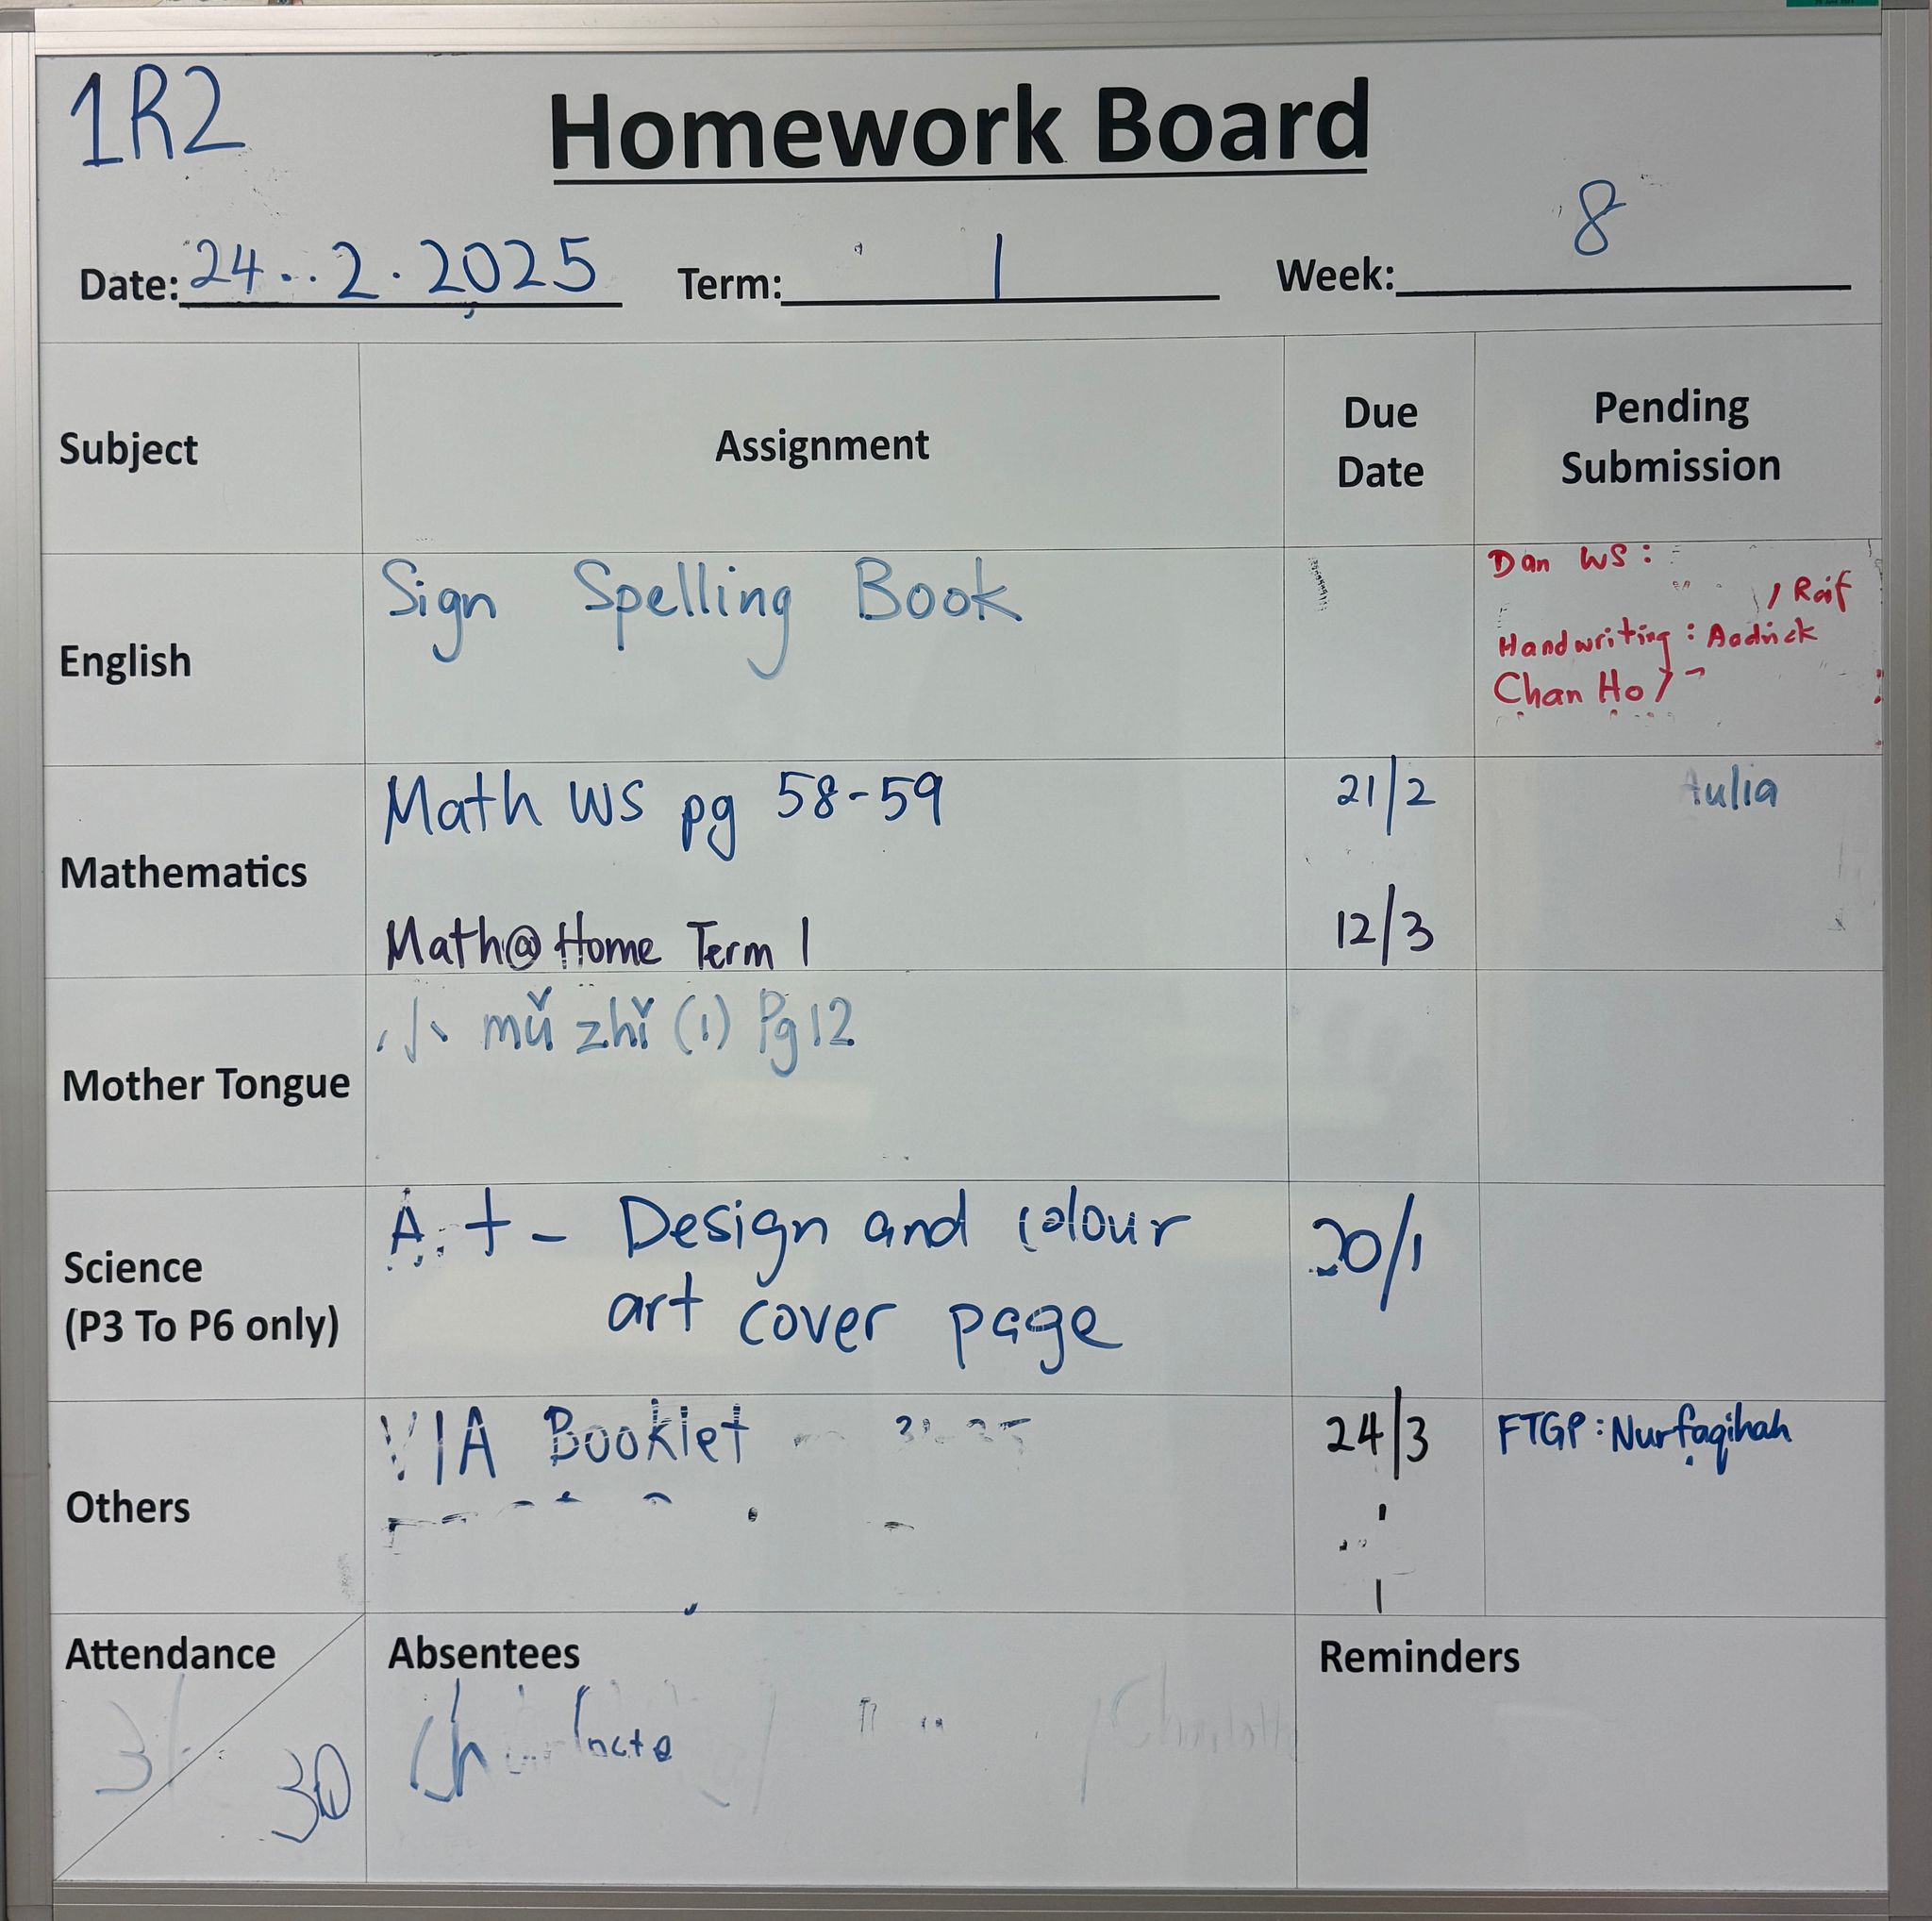 1R2
Homework Board
Date: 24..2.2025 Term: 1 Week: 8
Subject
Assignment
Due
Date
Pending
Submission
English
Sign Spelling Book
Dan WS:
, Raif
Handwriting: Aadrick
Chan Ho
Mathematics
Math WS pg 58-59
21/2
Math@Home Term 1
12/3
Mother Tongue
小 mǔ zhǐ (1) Pg 12
Science
(P3 To P6 only)
Art - Design and colour
art cover page
Others
VIA Booklet
24/3
FTGP: Nurfaqihah
Attendance
30
Absentees
Reminders